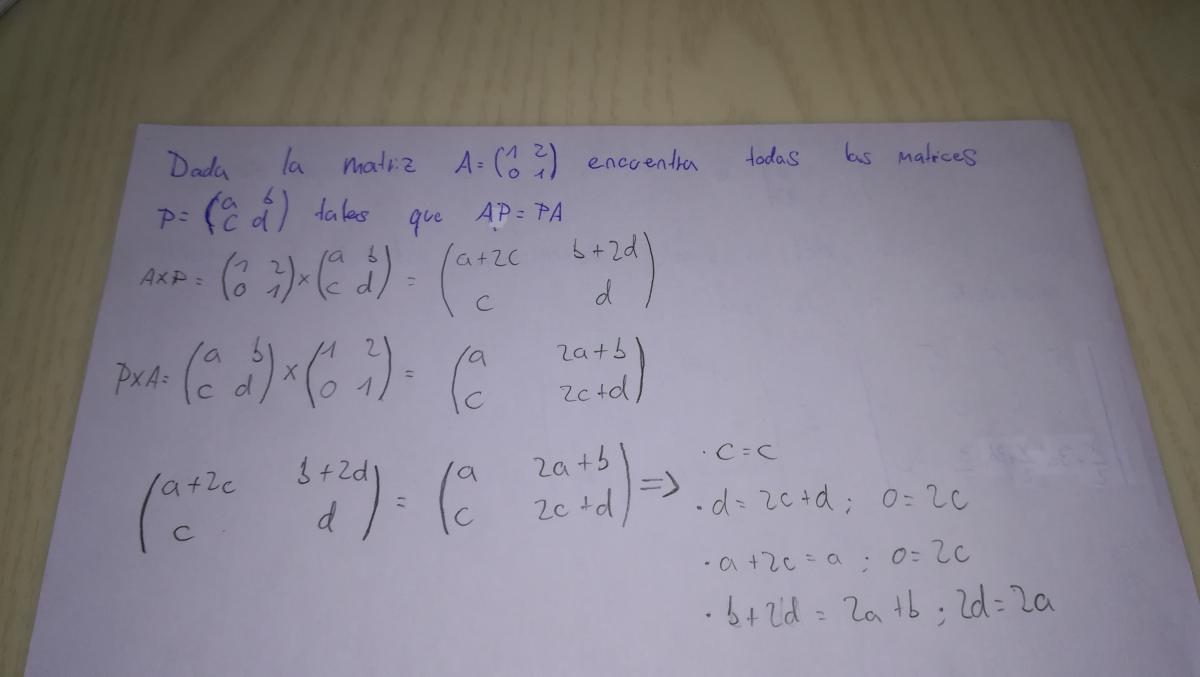 Dada la matriz A=(1 2 0 1) encuentra todas las matrices
P=(a b c d) tales que AP=PA
A×P = (1 2 0 1)×(a b c d) = (a+2c b+2d c d)
P×A= (a b c d)×(1 2 0 1) = (a 2a+b c 2c+d)
(a+2c b+2d c d) = (a 2a+b c 2c+d) =>
· c=c
· d=2c+d; 0=2c
· a+2c=a; 0=2c
· b+2d = 2a+b; 2d=2a